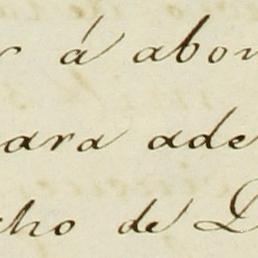 r á abon
ara ade
cho de D